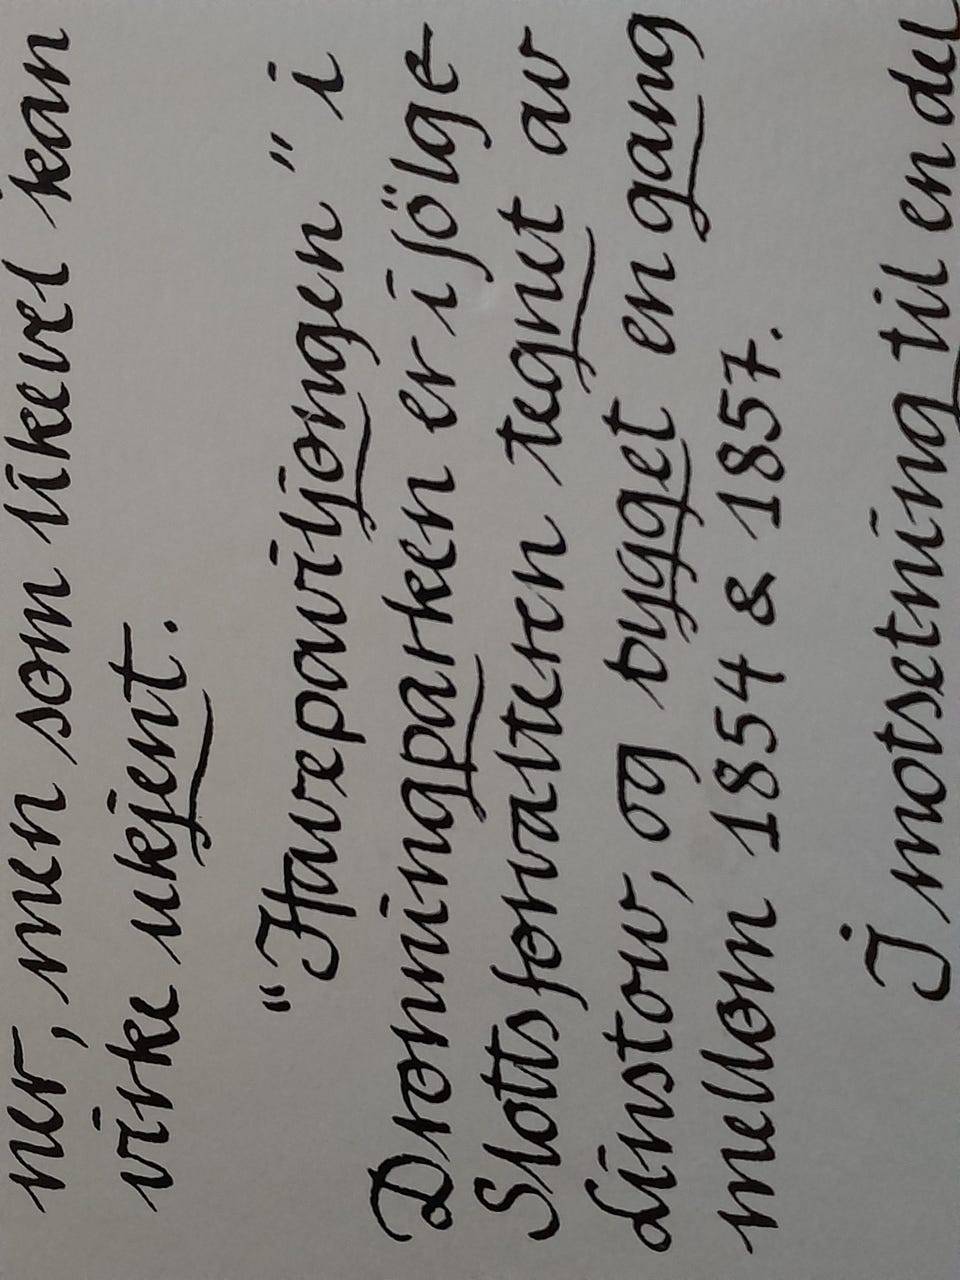 ner, men som likevel kan
virke ukjent.
"Havepaviljongen" i
Dronningparken er i fölge
Slottsforvalteren tegnet av
Linstow, og bygget en gang
mellom 1854 & 1857.
I motsetning til en del